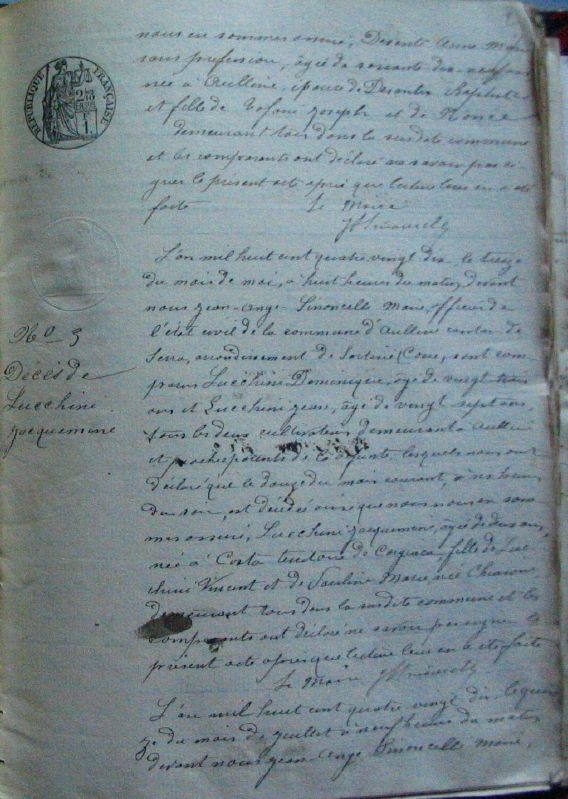 RÉPUBLIQUE FRANÇAISE
nous en sommes assuré, Desanti Anne Marie
sans profession, âgée de soixante dix neuf ans
née à Aullène, épouse de Desantis Baptiste
et fille de Tafani Joseph et de
demeurant tous dans la susdite commune
et les comparants ont déclaré ne savoir pas si-
gner le présent acte après que lecture leur en a été
faite Le Maire
N° 5
Décès de
Lucchini
Jacquemine
L'an mil huit cent quatre vingt dix le treize
du mois de mai, à huit heures du matin, devant
nous Jean-Ange Simoncelli Maire, officier de
l'état civil de la commune d'Aullène canton de
Serra, arrondissement de Sartène (Corse, sont com-
parus Lucchini Dominique, âgé de vingt trois
ans et Lucchini Jean, âgé de vingt sept ans,
tous les deux cultivateurs demeurant à Aullène
et parents de la défunte, lesquels nous ont
déclaré que le douze du mois courant, à heures
du soir, est décédée ainsi que nous nous en som-
mes assuré, Lucchini Jacquemine, âgée de deux ans,
née à Costa territoire de fille de Luc
chini Vincent et de Pauline Marie née
demeurant tous dans la susdite commune et les
comparants ont déclaré ne savoir pas signer le
présent acte après que lecture leur en a été faite
Le Maire
L'an mil huit cent quatre vingt dix le quin
ze du mois de juillet à neuf heures du matin
devant nous Jean-Ange Simoncelli Maire,